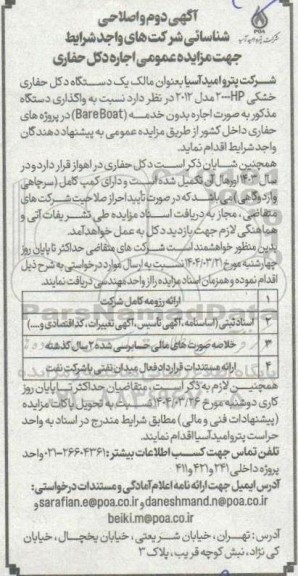 آگهی دوم و اصلاحی
شناسائی شرکت های واجد شرایط
جهت مزایده عمومی اجاره دکل حفاری
شرکت پترو امید آسیا بعنوان مالک یک دستگاه دکل حفاری
خشکی ۲۰۰۰HP مدل ۲۰۱۲ در نظر دارد نسبت به واگذاری دستگاه
مذکور به صورت اجاره بدون خدمه (BareBoat) در پروژه های
حفاری داخل کشور از طریق مزایده عمومی به پیشنهاد دهندگان
واجد شرایط اقدام نماید.
همچنین شایان ذکر است دکل حفاری در اهواز قرار دارد و در
سال ۱۴۰۳ اورهال آن تکمیل شده است و دارای کمپ کامل (سرچاهی
و اردوگاهی) می باشد که در صورت تأیید احراز صلاحیت شرکت های
متقاضی، مجاز به دریافت اسناد مزایده طی تشریفات آتی و
هماهنگی لازم جهت بازدید دکل به عمل خواهد آمد.
بدین منظور خواهشمند است شرکت های متقاضی حداکثر تا پایان روز
چهارشنبه مورخ ۱۴۰۴/۰۳/۲۱ نسبت به ارسال موارد درخواستی به شرح ذیل
اقدام نموده و همزمان اسناد مزایده را از واحد مهندسی دریافت نمایند.
۱ ارائه رزومه کامل شرکت
۲ اسناد ثبتی (اساسنامه، آگهی تاسیس، آگهی تغییرات، کد اقتصادی و....)
۳ خلاصه صورت های مالی حسابرسی شده ۲ سال گذشته
۴ ارائه مستندات قرارداد فعال میدان نفتی با شرکت نفت
همچنین لازم به ذکر است، متقاضیان حداکثر تا پایان روز
کاری دوشنبه مورخ ۱۴۰۴/۰۳/۲۶ نسبت به تحویل پاکات مزایده
(پیشنهادات فنی و مالی) مطابق شرایط مندرج در اسناد به واحد
حراست پترو امید آسیا اقدام نمایند.
تلفن تماس جهت کسب اطلاعات بیشتر: ۰۲۱-۲۶۶۰۴۳۶۱ واحد
پروژه داخلی ۲۴۱ و ۴۲۱ و ۴۱۱
آدرس ایمیل جهت ارائه نامه اعلام آمادگی و مستندات درخواستی:
sarafian.e@poa.co.ir و daneshmand.n@poa.co.ir و
beiki.m@poa.co.ir
آدرس: تهران، خیابان شریعتی، خیابان یخچال، خیابان
کی نژاد، نبش کوچه قریب، پلاک ۳